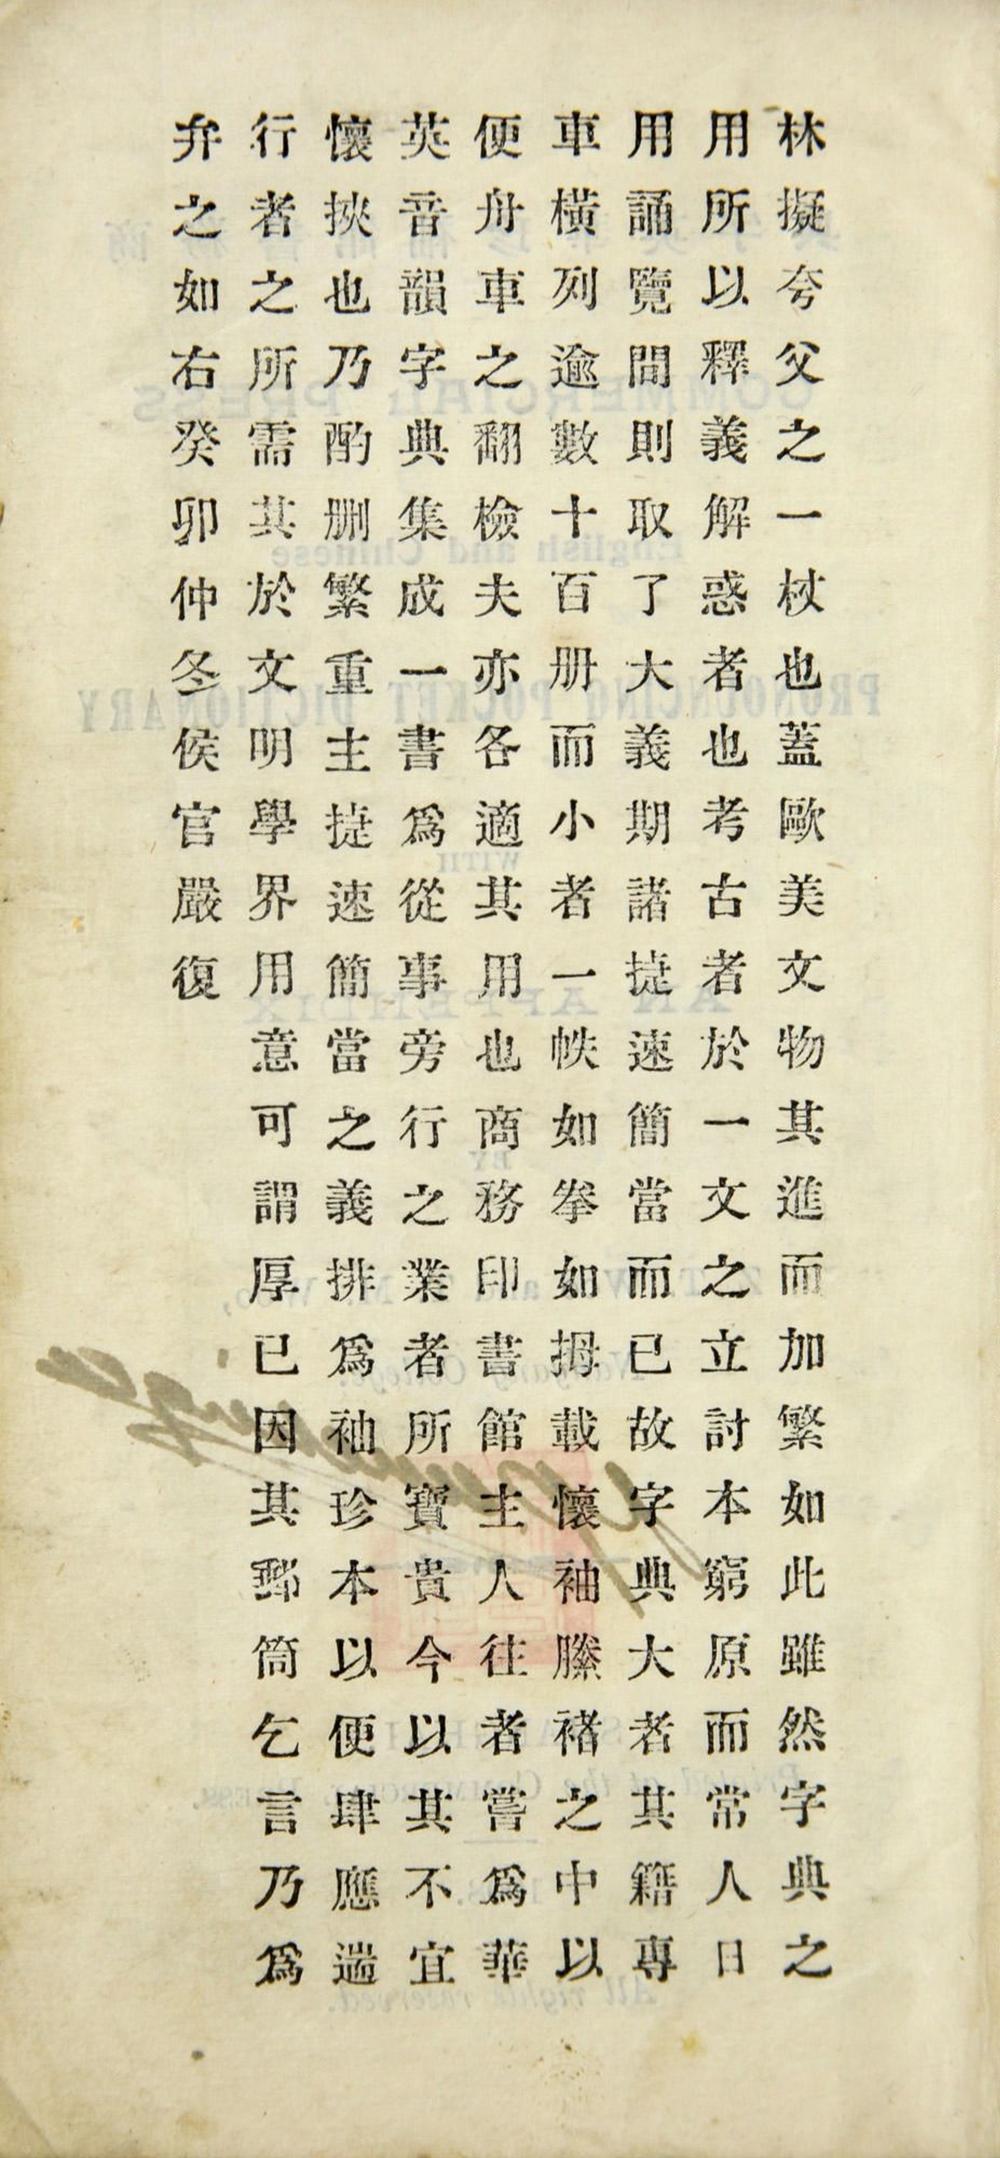 林擬夸父之一杖也蓋歐美文物其進而加繁如此雖然字典之
用所以釋義解惑者也考古者於一文之立討本窮原而常人日
用誦覽間則取了大義期諸捷速簡當而已故字典大者其籍專
車橫列逾數十百册而小者一帙如拳如拇載懷袖縢褚之中以
便舟車之翻檢夫亦各適其用也商務印書館主人往者嘗爲華
英音韻字典集成一書爲從事旁行之業者所寶貴今以其不宜
懷挾也乃酌刪繁重主捷速簡當之義排爲袖珍本以便肆應遄
行者之所需其於文明學界用意可謂厚已因其郵筒乞言乃爲
弁之如右癸卯仲冬侯官嚴復